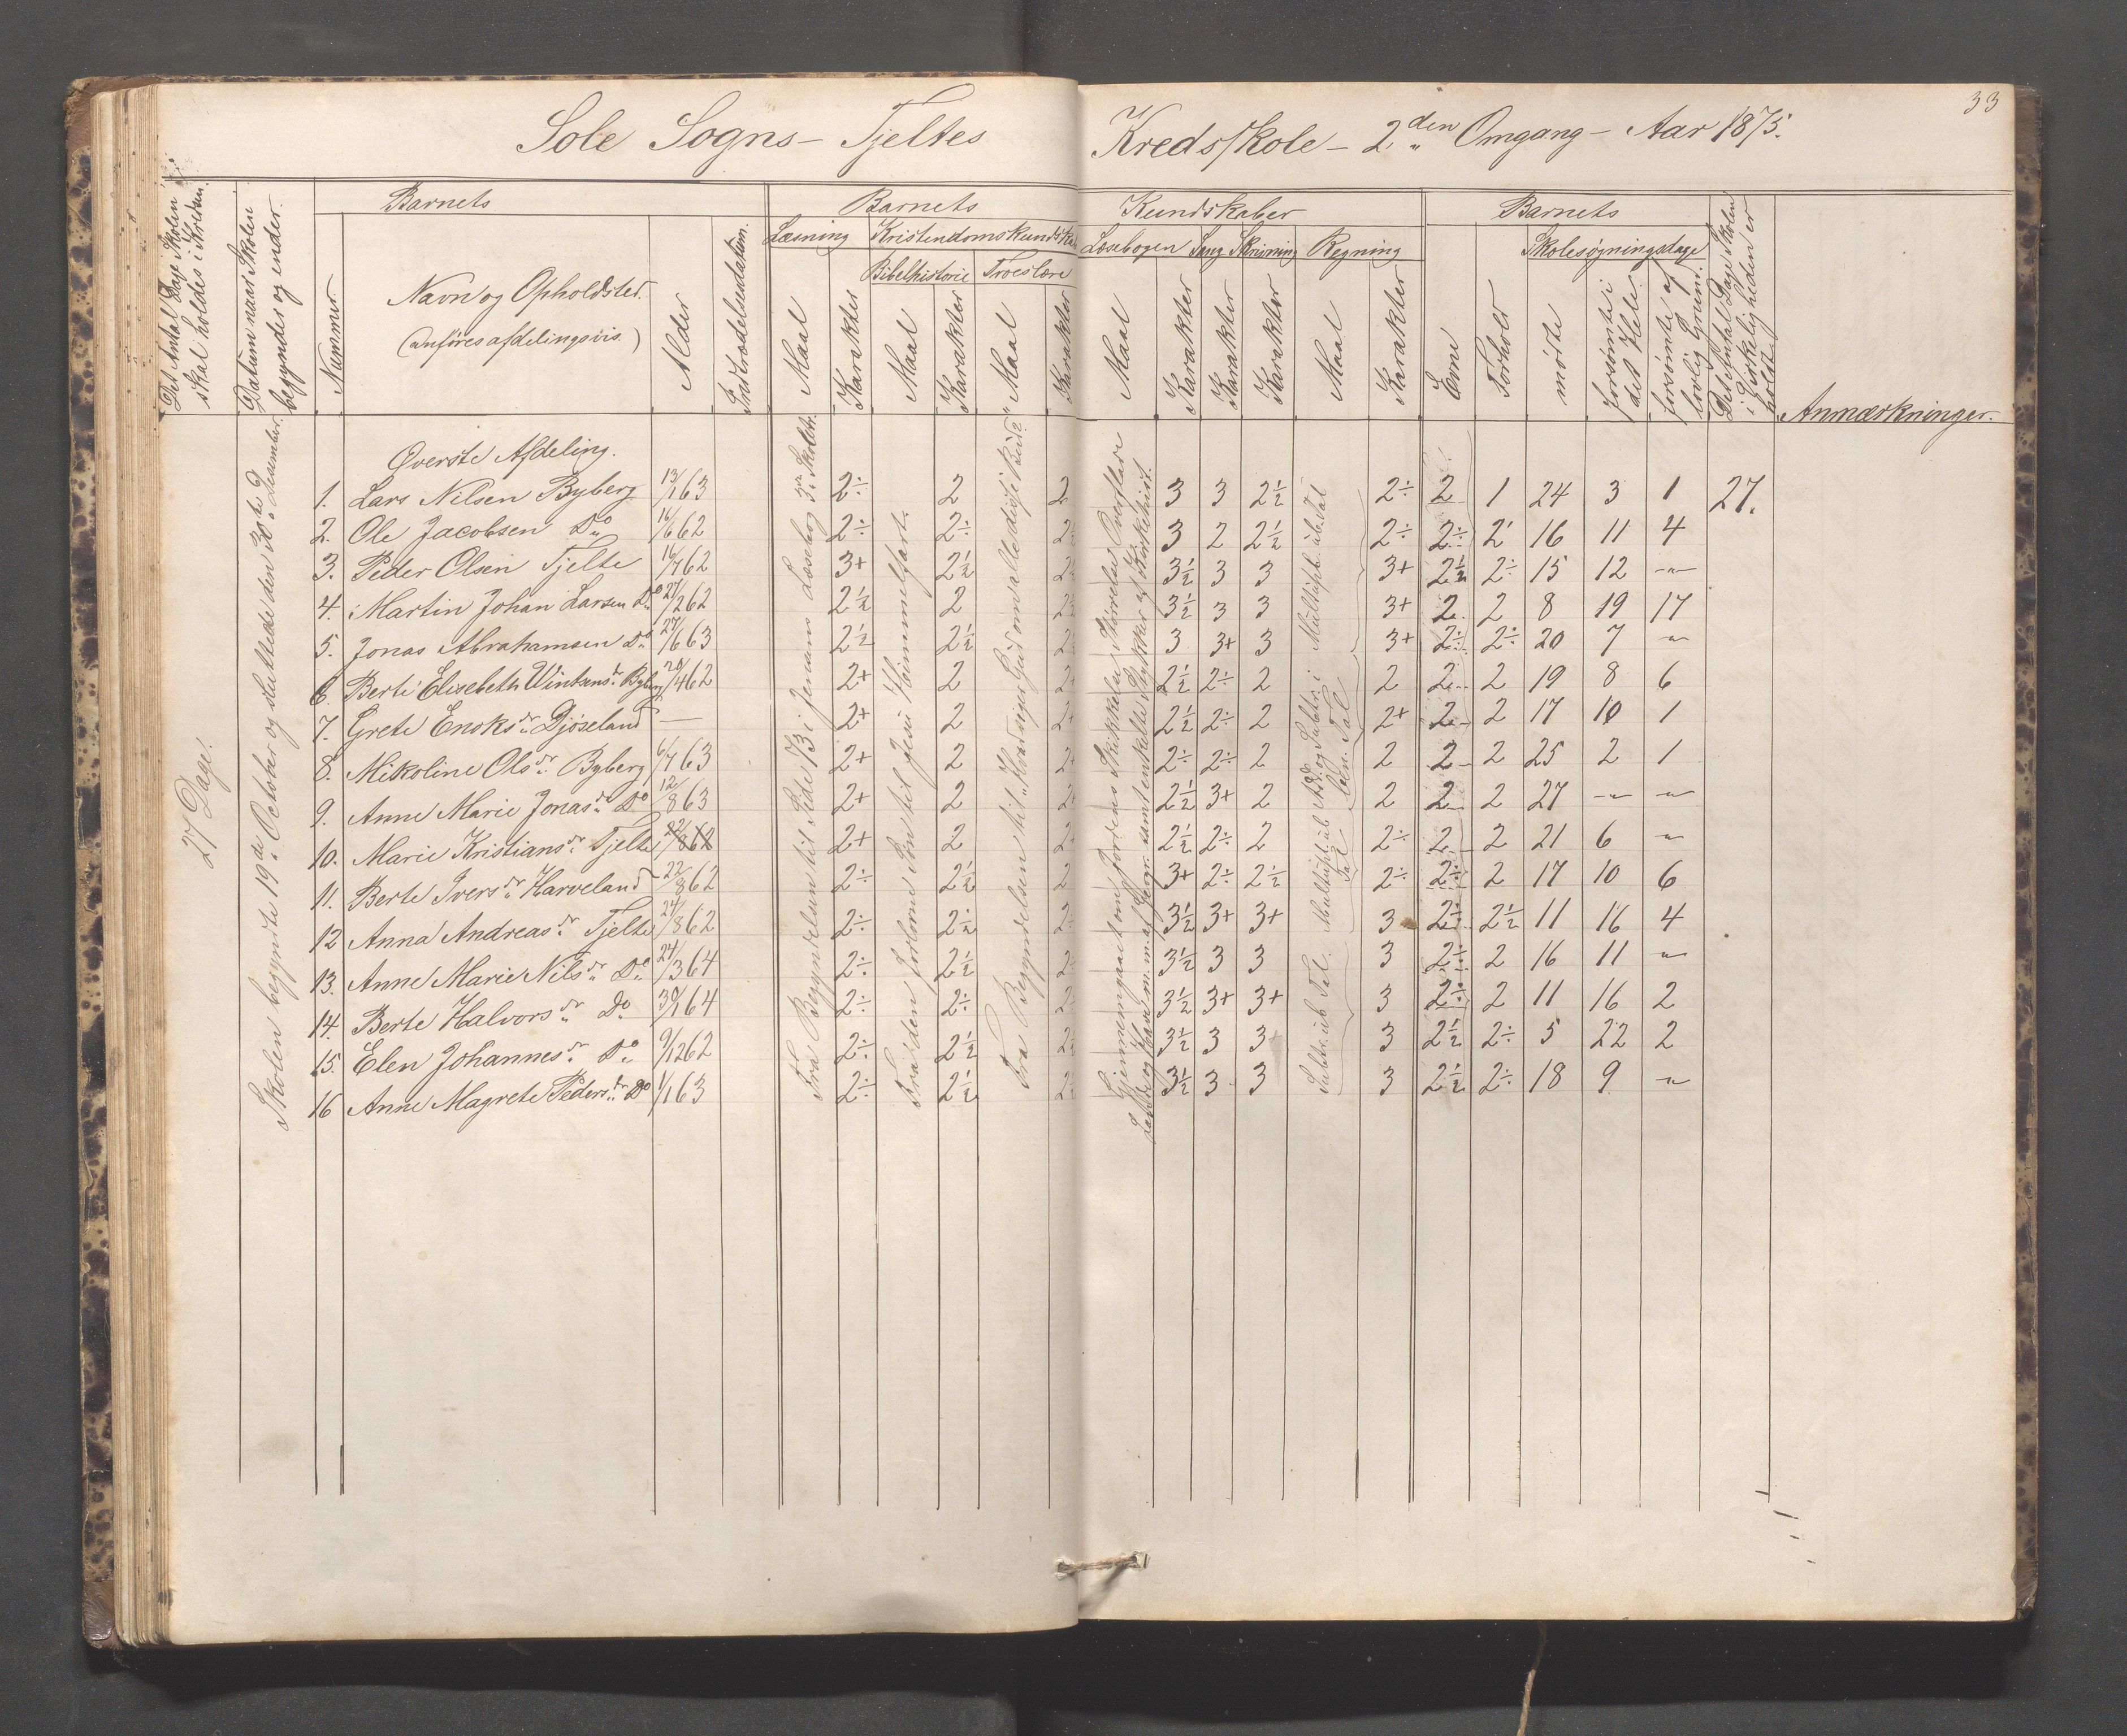 33
Sole Sogns – Tjeltes Kredsskole – 2den Omgang – Aar 1875.
Det Antal Dage Skolen skal holdes i Kredsen.
Datum naar Skolen begyndes og ender.
Barnets
Nummer
Navn og Opholdsted.
(anføres afdelingsvis.)
Alder
Indtrædelsesdatum.
Barnets Kundskaber
Læsning
Kristendomskundska
Bibelhistorie
Troeslære
Læsebogen
Sang
Skrivning
Regning
Maal
Karakter
Maal
Karakter
Maal
Karakter
Maal
Karakter
Karakter
Karakter
Maal
Karakter
Barnets
Evne
Forhold
Skolesøgningsdage
mødte
forsømte i det Hele.
forsømte af lovlig Grund.
Det Antal Dage Skolen i Virkeligheden er holdt
Anmærkninger.
27 Dage.
Skolen begyndte 19de October og sluttede den 30te December.
Fra Begyndelsen til Side 73 i Jensens Læsebog 3die Skoletr.
Fra den forlorne Søn til Jesu Himmelfart.
Fra Begyndelsen til "Hvad siger Gud om alle disse Bud?"
Gjennemgaaet om Jordens Skikkelse, Størrelse, Overflade
Lande og Have m.m. af Geogr. samt enkelte Stykker af Kirkehist.
Multipl. ub. Tal
Add. og Subtr. i ben. Tal
Multipl. ub. Tal
Subtr. ub. Tal.
Øverste Afdeling.
1. Lars Nilsen Byberg 13/1 63 2÷ 2 2 3 3 2½ 2÷ 2 1 24 3 1 27.
2. Ole Jacobsen Do 16/6 62 2÷ 2÷ 2÷ 3 2 2½ 2÷ 2÷ 2 16 11 4
3. Peder Olsen Tjelte 16/7 62 3+ 2½ 2½ 3½ 3 3 3+ 2½ 2÷ 15 12 -"-
4. Martin Johan Larsen Do 27/2 62 2½ 2 2½ 3½ 3 3 3+ 2 2 8 19 17
5. Jonas Abrahamsen Do 27/6 63 2½ 2½ 2÷ 3 3+ 3 3+ 2÷ 2÷ 20 7 -"-
6. Berte Elisebeth Wintsensdr Byberg 20/4 62 2+ 2 2+ 2½ 2÷ 2 2 2 2 19 8 6
7. Grete Enoksdr Djøseland — 2+ 2 2+ 2½ 2÷ 2 2+ 2 2 17 10 1
8. Nikoline Olsdr Byberg 6/7 63 2+ 2 2+ 2÷ 2÷ 2 2 2 2 25 2 1
9. Anne Marie Jonasdr Do 12/8 63 2+ 2 2+ 2½ 3+ 2 2 2 2 27 -"- -"-
10. Marie Kristiansdr Tjelte 2+ 2 2+ 2½ 2÷ 2 2÷ 2 2 21 6 -"-
11. Berte Iversdr Harveland 22/8 62 2÷ 2½ 2 3+ 2÷ 2½ 2÷ 2÷ 2 17 10 6
12 Anna Andreasdr Tjelte 24/8 62 2÷ 2÷ 2÷ 3½ 3+ 3+ 3 2÷ 2½ 11 16 4
13. Anne Marie Nilsdr Do 24/3 64 2÷ 2½ 2÷ 3½ 3 3 3 2÷ 2 16 11 -"-
14. Berte Halvorsdr Do 30/1 64 2÷ 2÷ 2÷ 3½ 3+ 3+ 3 2÷ 2 11 16 2
15. Elen Johannesdr Do 9/12 62 2÷ 2½ 2½ 3½ 3 3 3 2½ 2÷ 5 22 2
16 Anne Magrete Pedersdr Do 1/1 63 2÷ 2½ 2½ 3½ 3 3 3 2½ 2÷ 18 9 -"-